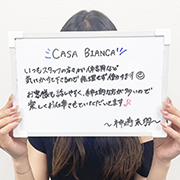 CASA BIANCA
いつもスタッフの方々が体調など
気にかけて下さるので無理せず働けます
お客様も話しやすく、紳士的な方が多いので
楽しくお仕事させていただいてます♪